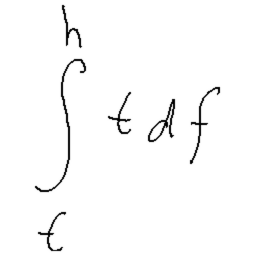 ∫_t^h t df